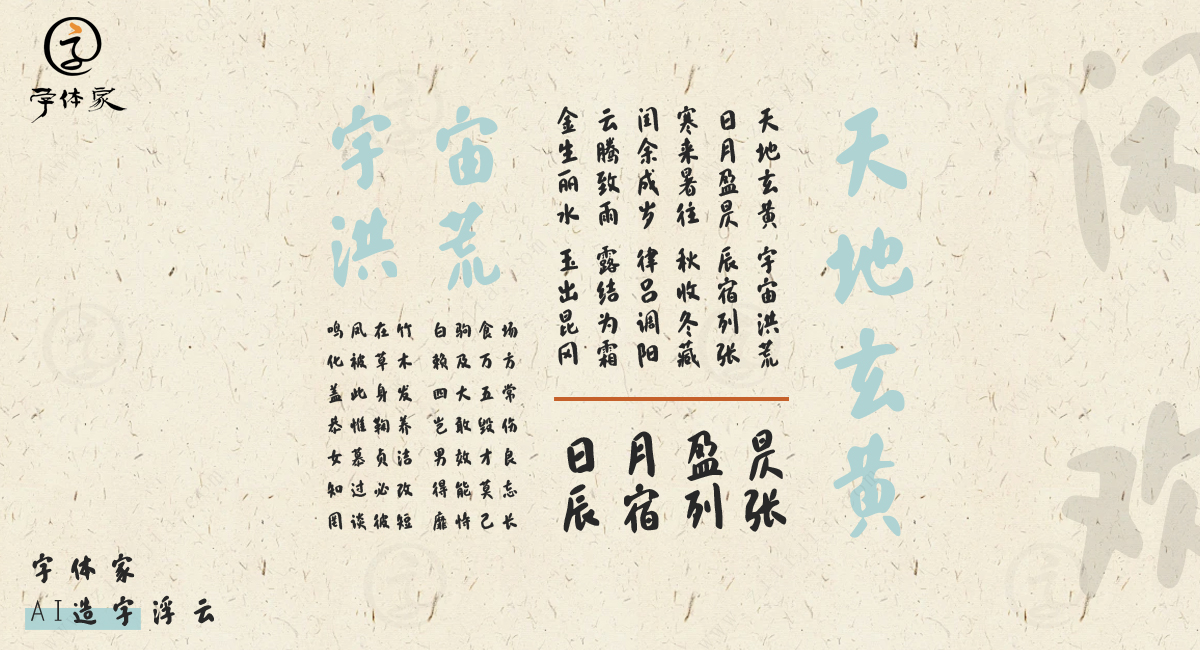 字体家
天地玄黄
天地玄黄 宇宙洪荒
日月盈昃 辰宿列张
寒来暑往 秋收冬藏
闰余成岁 律吕调阳
云腾致雨 露结为霜
金生丽水 玉出昆冈
日月盈昃
辰宿列张
宇宙
洪荒
鸣凤在竹 白驹食场
化被草木 赖及万方
盖此身发 四大五常
恭惟鞠养 岂敢毁伤
女慕贞洁 男效才良
知过必改 得能莫忘
罔谈彼短 靡恃己长
字体家
AI造字浮云